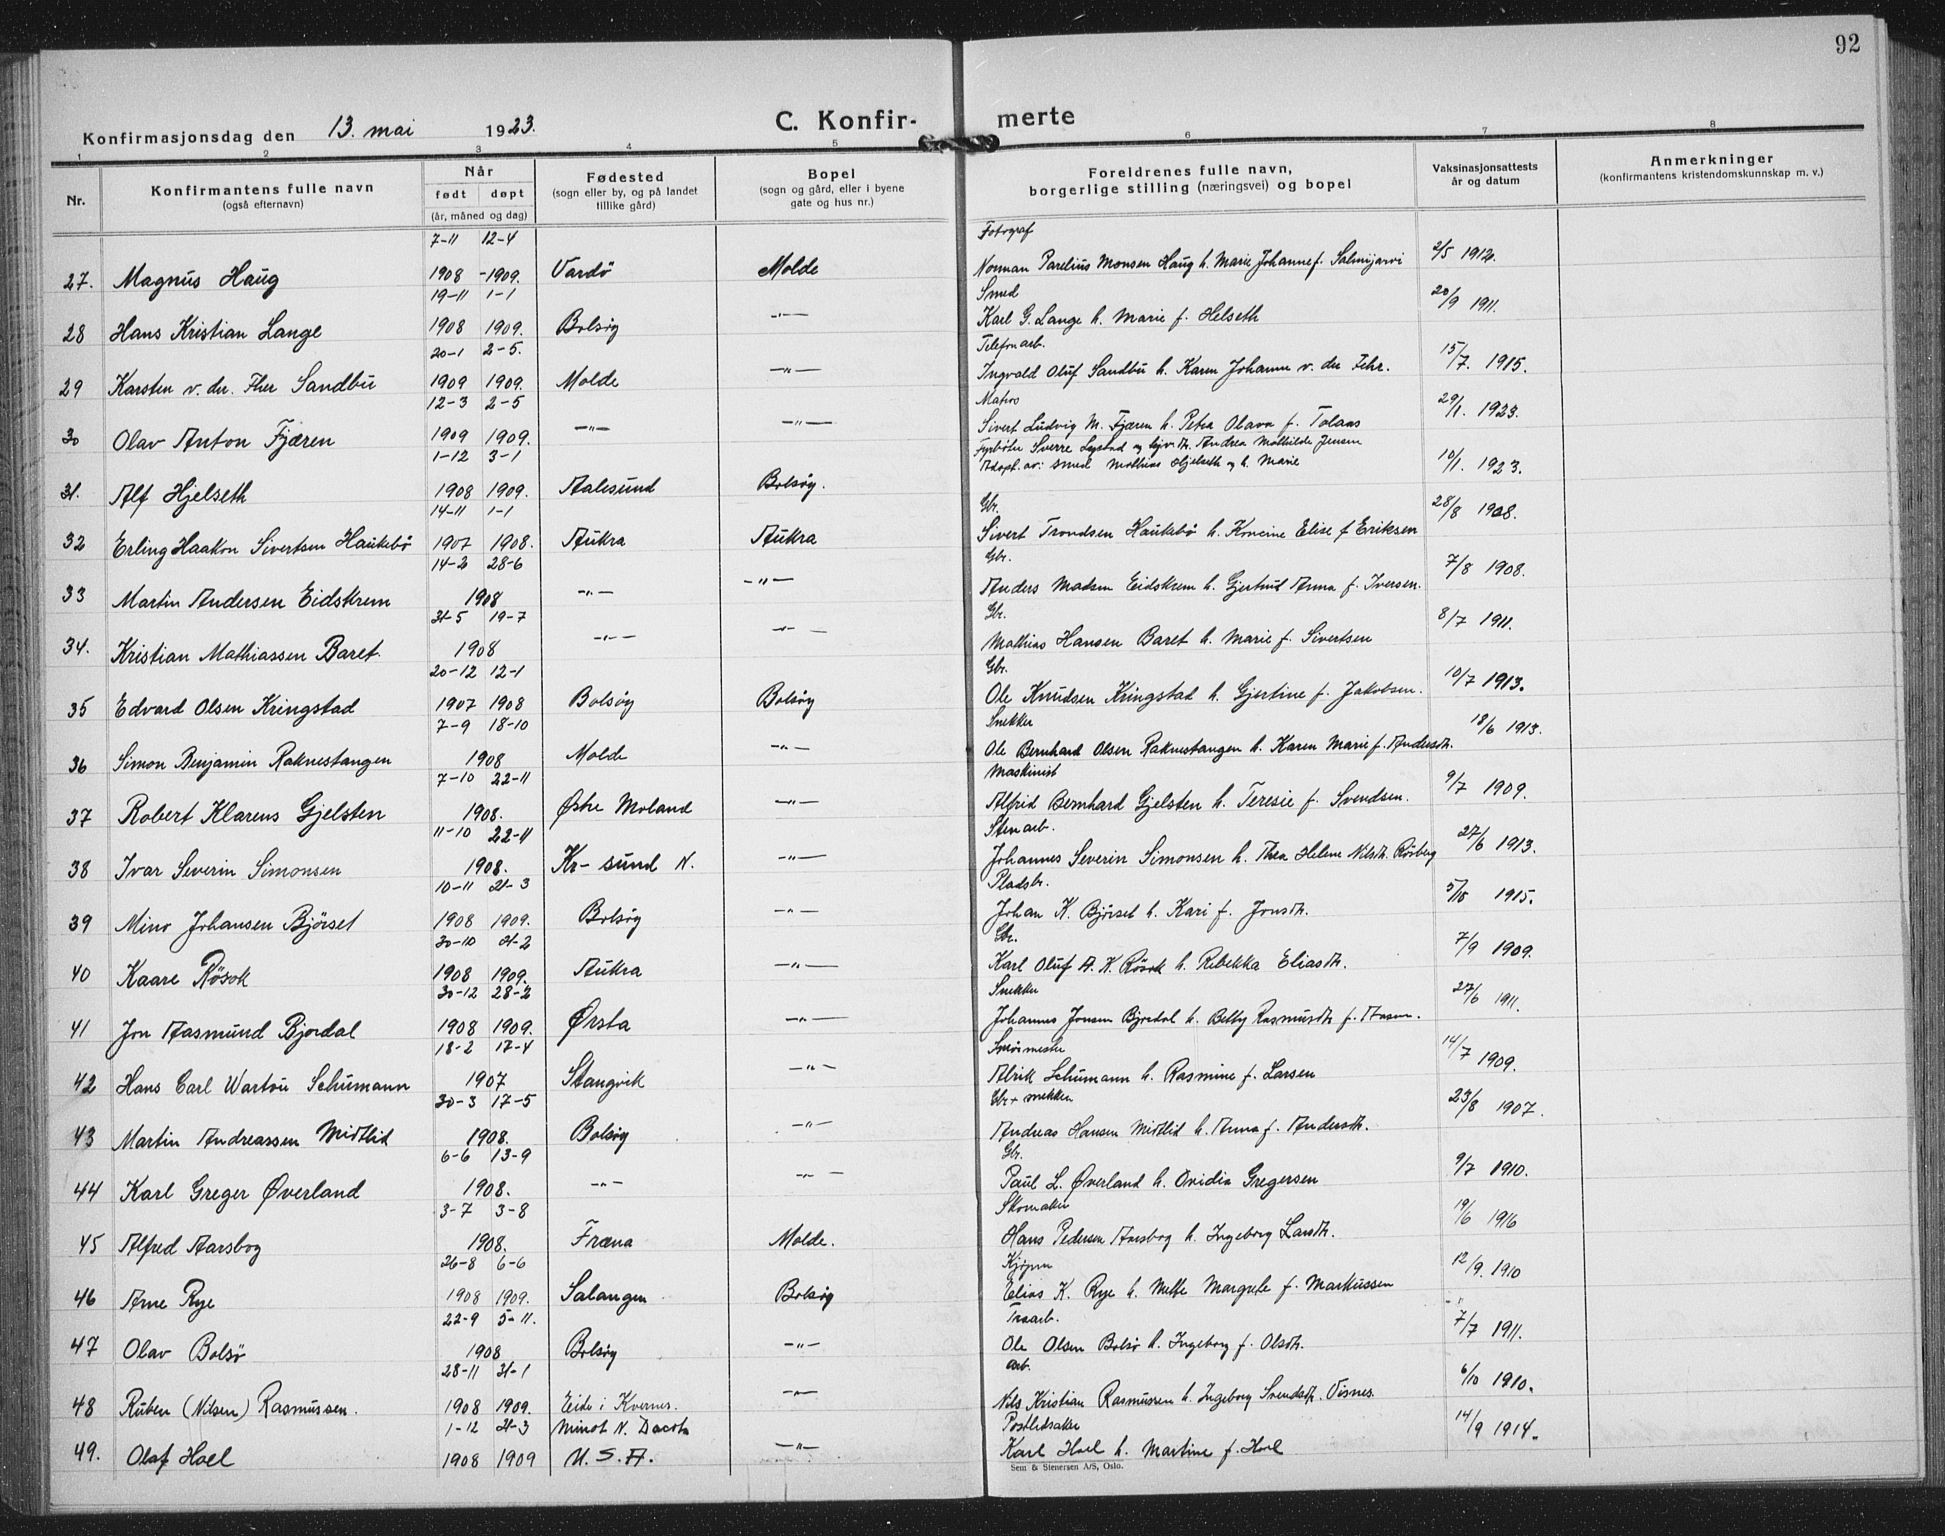 92
Konfirmasjonsdag den 13. mai 1923. C. Konfir- merte
1 2 3 4 5 6 7 8
Nr. Konfirmantens fulle navn (også efternavn) Når født døpt (år, måned og dag) Fødested (sogn eller by, og på landet tillike gård) Bopel (sogn og gård, eller i byene gate og hus nr.) Foreldrenes fulle navn, borgerlige stilling (næringsvei) og bopel Vaksinasjonsattests år og datum Anmerkninger (konfirmantens kristendomskunnskap m. v.)
7-11 12-4 Fotograf
27. Magnus Haug 1908 - 1909. Vardö Molde Norman Parelius Monsen Haug h. Marie Johanne f. Salmijarvi 2/5 1912.
19-11 1-1 Smed
28 Hans Kristian Lange 1908 1909. Bolsöy -"- Karl G. Lange h. Marie f. Helseth 20/9 1911.
20-1 2-5. Telefonarb.
29 Karsten v. der. Fher Sandbu 1909 1909. Molde -"- Ingvald Oluf Sandbu h. Karen Johanne v. der Fehr. 15/7. 1915.
12-3 2-5 Matros
30 Olav Anton Fjæren 1909 1909. -"- -"- Sivert Ludvig M. Fjæren h. Petra Olava f. Tolaas 29/1. 1923.
1-12 3-1 Fyrböter Sverre Andrea Mathilde Jensen
Adopt. av: smed Mathias Hjelseth og h. Marie
31. Alf Hjelseth 1908 1909. Aalesund Bolsöy. 10/1. 1923.
14-11 1-1 Gbr.
32 Erling Haakon Sivertsen Haukebö 1907 1908. Aukra Aukra Sivert Trondsen Haukebö h. Elise f Eriksen 28/8 1908.
14-2 28-6 Gbr.
33 Martin Andersen Eidskrem 1908 -"- -"- Anders Madsen Eidskrem h. Gjertrud Anna f. Iversen. 7/8 1908.
31-5 19-7 Gbr.
34. Kristian Mathiassen Baret. 1908 -"- -"- Mathias Hansen Baret h. Marie f. Sivertsen 8/7 1911.
20-12 12-1 Gbr.
35 Edvard Olsen Kringstad 1907 1908 Bolsöy Bolsöy Ole Knudsen Kringstad h. Gjertine f. Jakobsen. 10/7 1913.
7-9 18-10 Snekker
36 Simon Benjamin Raknestangen 1908 Molde -"- Ole Bernhard Olsen Raknestangen h. Karen Marie f. Andersdt. 18/6 1913.
7-10 22-11 Maskinist
37 Robert Klarens Gjelsten 1908. Østre Moland -"- Alfrid Bernhard Gjelsten h. Teresie f. Svendsen. 9/7 1909.
11-10 22-11 Stenarb.
38 Ivar Severin Simonsen 1908. Kr-sund N. -"- Johannes Severin Simonsen h. Thea Helene Nilsdt. Röiberg 27/6 1913.
10-11 21-3 Pladsbr.
39 Minor Johansen Björset 1908 1909. Bolsöy -"- Johan K. Björset h. Kari f. Jonsdt. 5/10 1915.
30-10 21-2 Gbr.
40 Kaare Rösok 1908 1909. Aukra -"- Karl Oluf A. K. Rösok h. Rebekka Eliasdt. 7/9 1909.
30-12 28-2 Snekker
41 Jon Aasmund Bjordal 1908 1909. Ørsta -"- Johannes Jonsen Bjordal h. Betty Rasmusdt. f. Aasen. 27/6 1911.
18-2 17-4 Smörmester
42 Hans Carl Wartou Schumann 1907 Stangvik -"- Alrik Schumann h. Rasmine f. Larsen 14/7 1909.
30-3 17-5 Gbr + snekker
43 Martin Andreassen Midtlid 1908. Bolsöy -"- Andreas Hansen Midtlid h. Anna f. Andersdt. 23/8 1907.
6-6 13-9 Gbr.
44 Karl Greger Øverland 1908. -"- -"- Paul L. Øverland h. Ovidia Gregersen 9/7 1910.
3-7 3-8 Skomaker
45 Alfred Aarsbog 1908. Fræna Molde. Hans Pedersen Aarsbog h. Ingeborg Larsdt. 19/6 1916
26-8 6-6 Kjöpm
46 Arne Rye 1908 1909. Salangen Bolsöy Elias K. Rye h. Mette Margrete f. Markussen 12/9. 1910
22-9 5-11. Traarb. -"-
47 Olav Bolsö 1908 Bolsöy -"- Ole Olsen Bolsö h. Ingeborg f. Olsdt. 7/7 1911.
28-11 31-1 arb.
48 Ruben (Nilsen) Rasmussen. 1908 1909. Eide i Kvernes. -"- Nils Kristian Rasmussen h. Ingeborg Svendsdt. Visnes. 6/10 1910.
1-12 21-3 Minot N. Dacota Postbetsakse
49. Olaf Hoel 1908 1909 U.S.A. -"- Karl Hoel h. Martine f. Hoel 14/9 1914.
Sem & Stenersen A/S, Oslo.